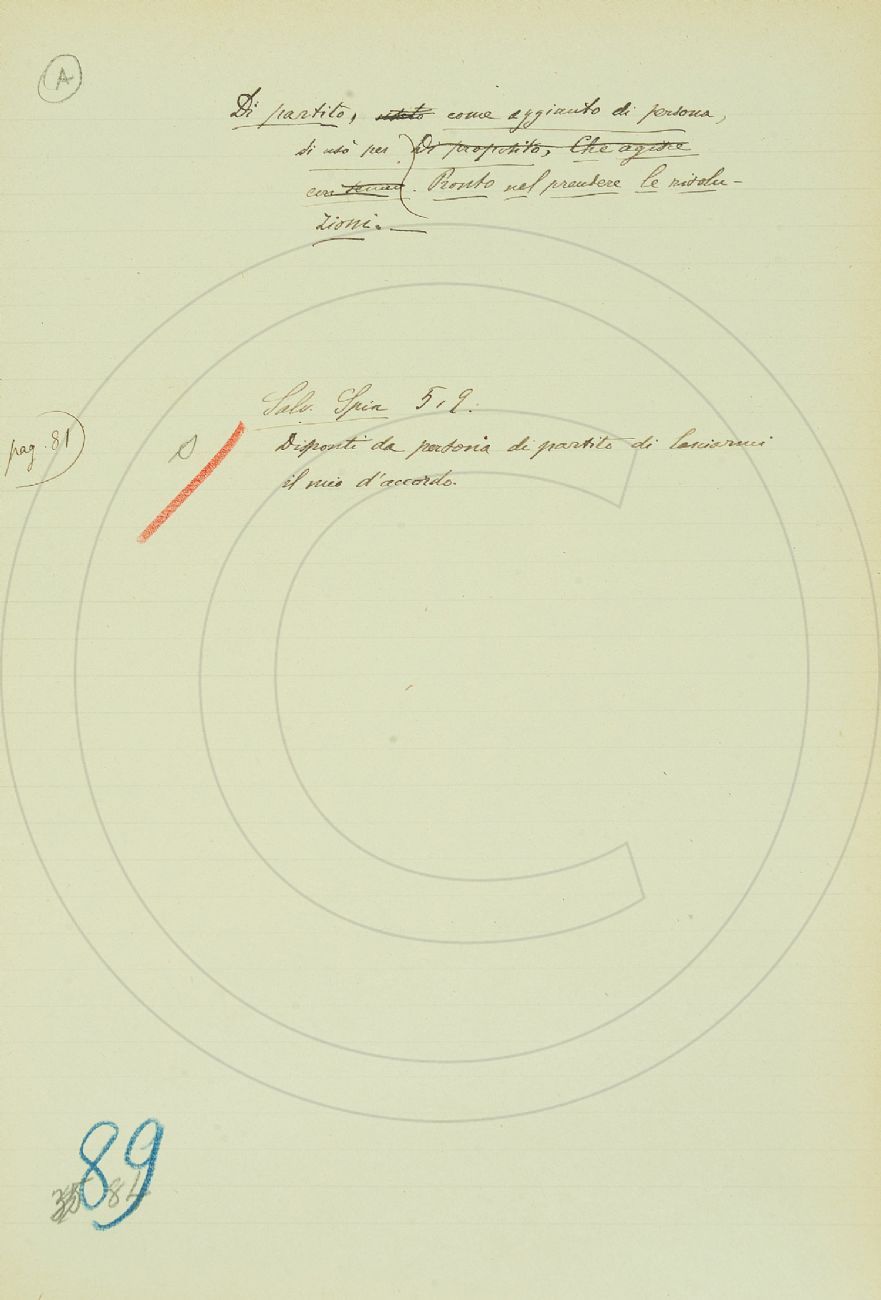 A
Di partito, usato come aggiunto di persona,
si usò per Di proposito, Che agisce
con senno. Pronto nel prendere le risolu-
zioni.
Salv. Spin. 5, 9.
pag. 81
S
Disponti da persona di partito di lasciarmi
il mio d'accordo.
89